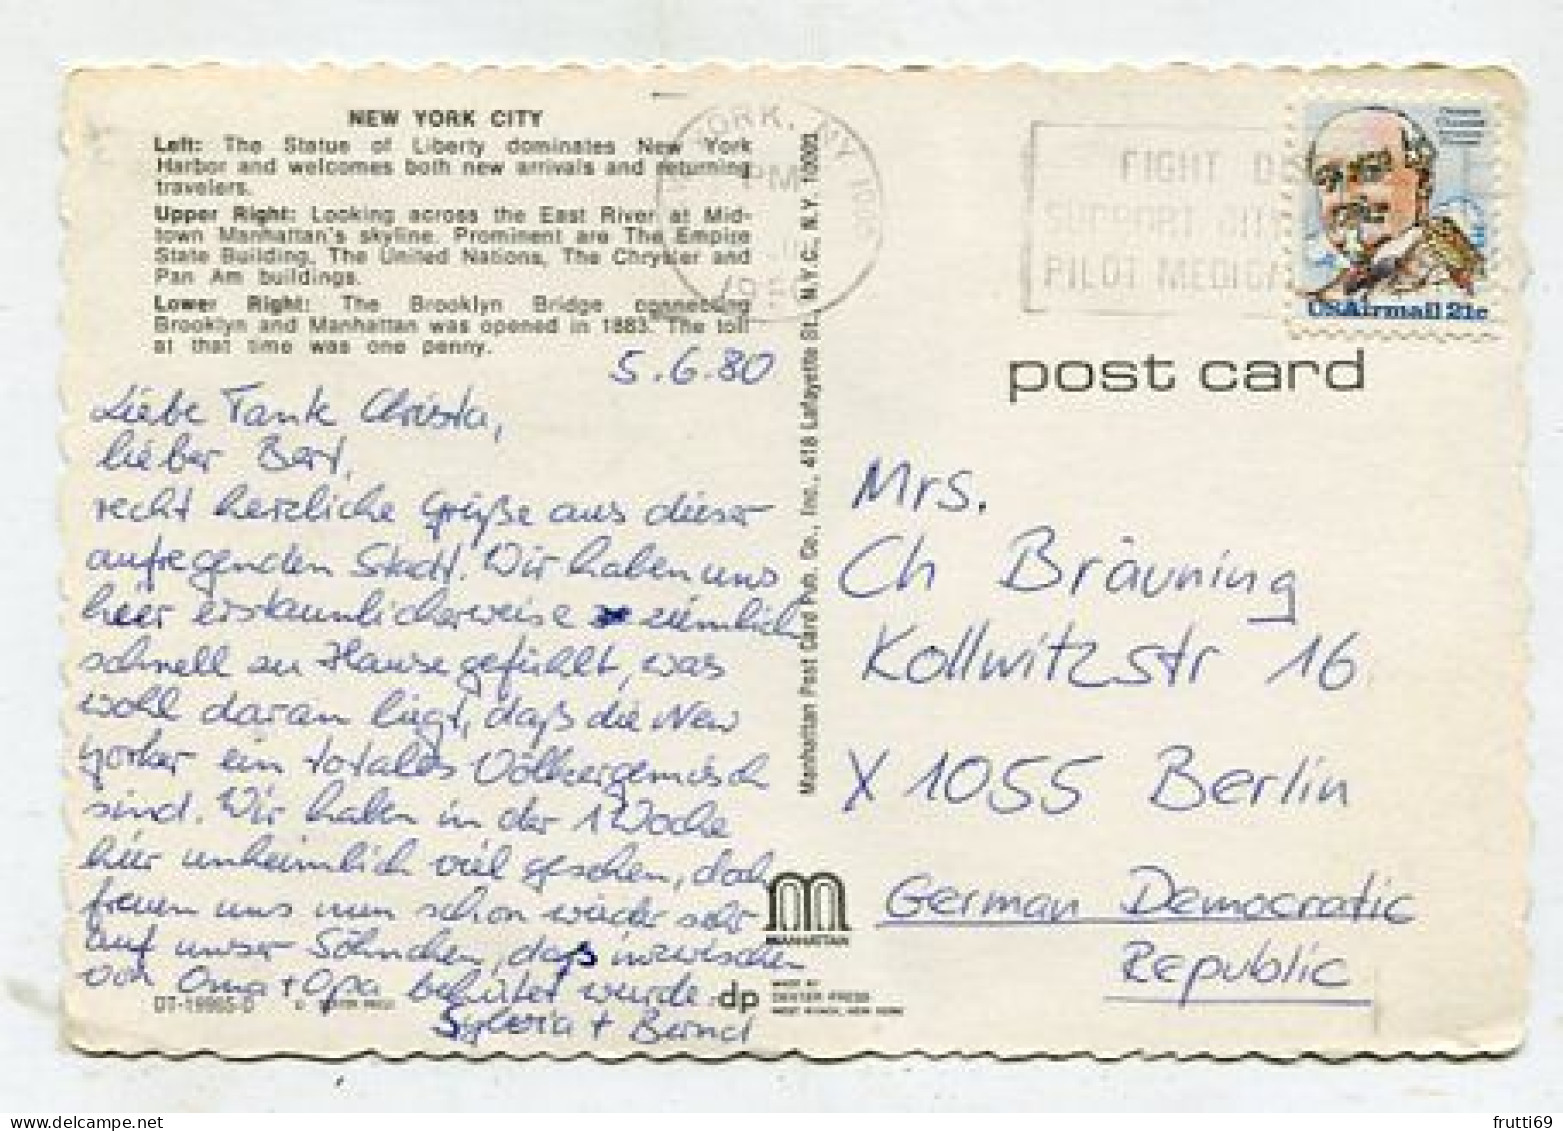 NEW YORK CITY
Left: The Statue of Liberty dominates New York
Harbor and welcomes both new arrivals and returning
travelers.
Upper Right: Looking across the East River at Mid-
town Manhattan's skyline. Prominent are The Empire
State Building, The United Nations, The Chrysler and
Pan Am buildings.
Lower Right: The Brooklyn Bridge connecting
Brooklyn and Manhattan was opened in 1883. The toll
at that time was one penny.
5.6.80
Liebe Tante Christa,
lieber Bert,
recht herzliche Grüße aus dieser
aufregenden Stadt. Wir haben uns
hier erstaunlicherweise ziemlich
schnell zu Hause gefühlt, was
wohl daran liegt, daß die New
Yorker ein totales Völkergemisch
sind. Wir haben in der 1 Woche
hier unheimlich viel gesehen, doch
freuen uns nun schon wieder sehr
auf unser Söhnchen, daß inzwischen
von Oma + Opa behütet wurde.
Sylvia + Bernd
DT-18965-D
Manhattan Post Card Pub. Co., Inc., 418 Lafayette St., N.Y.C., N.Y. 10003
YORK, NY 100
PM
FIGHT
SUPPORT
PILOT MEDICA
USAirmail 21c
post card
Mrs.
Ch Bräuning
Kollwitzstr 16
X 1055 Berlin
German Democratic
Republic
MANHATTAN
dp
MADE BY
DEXTER PRESS
WEST NYACK, NEW YORK
frutti69